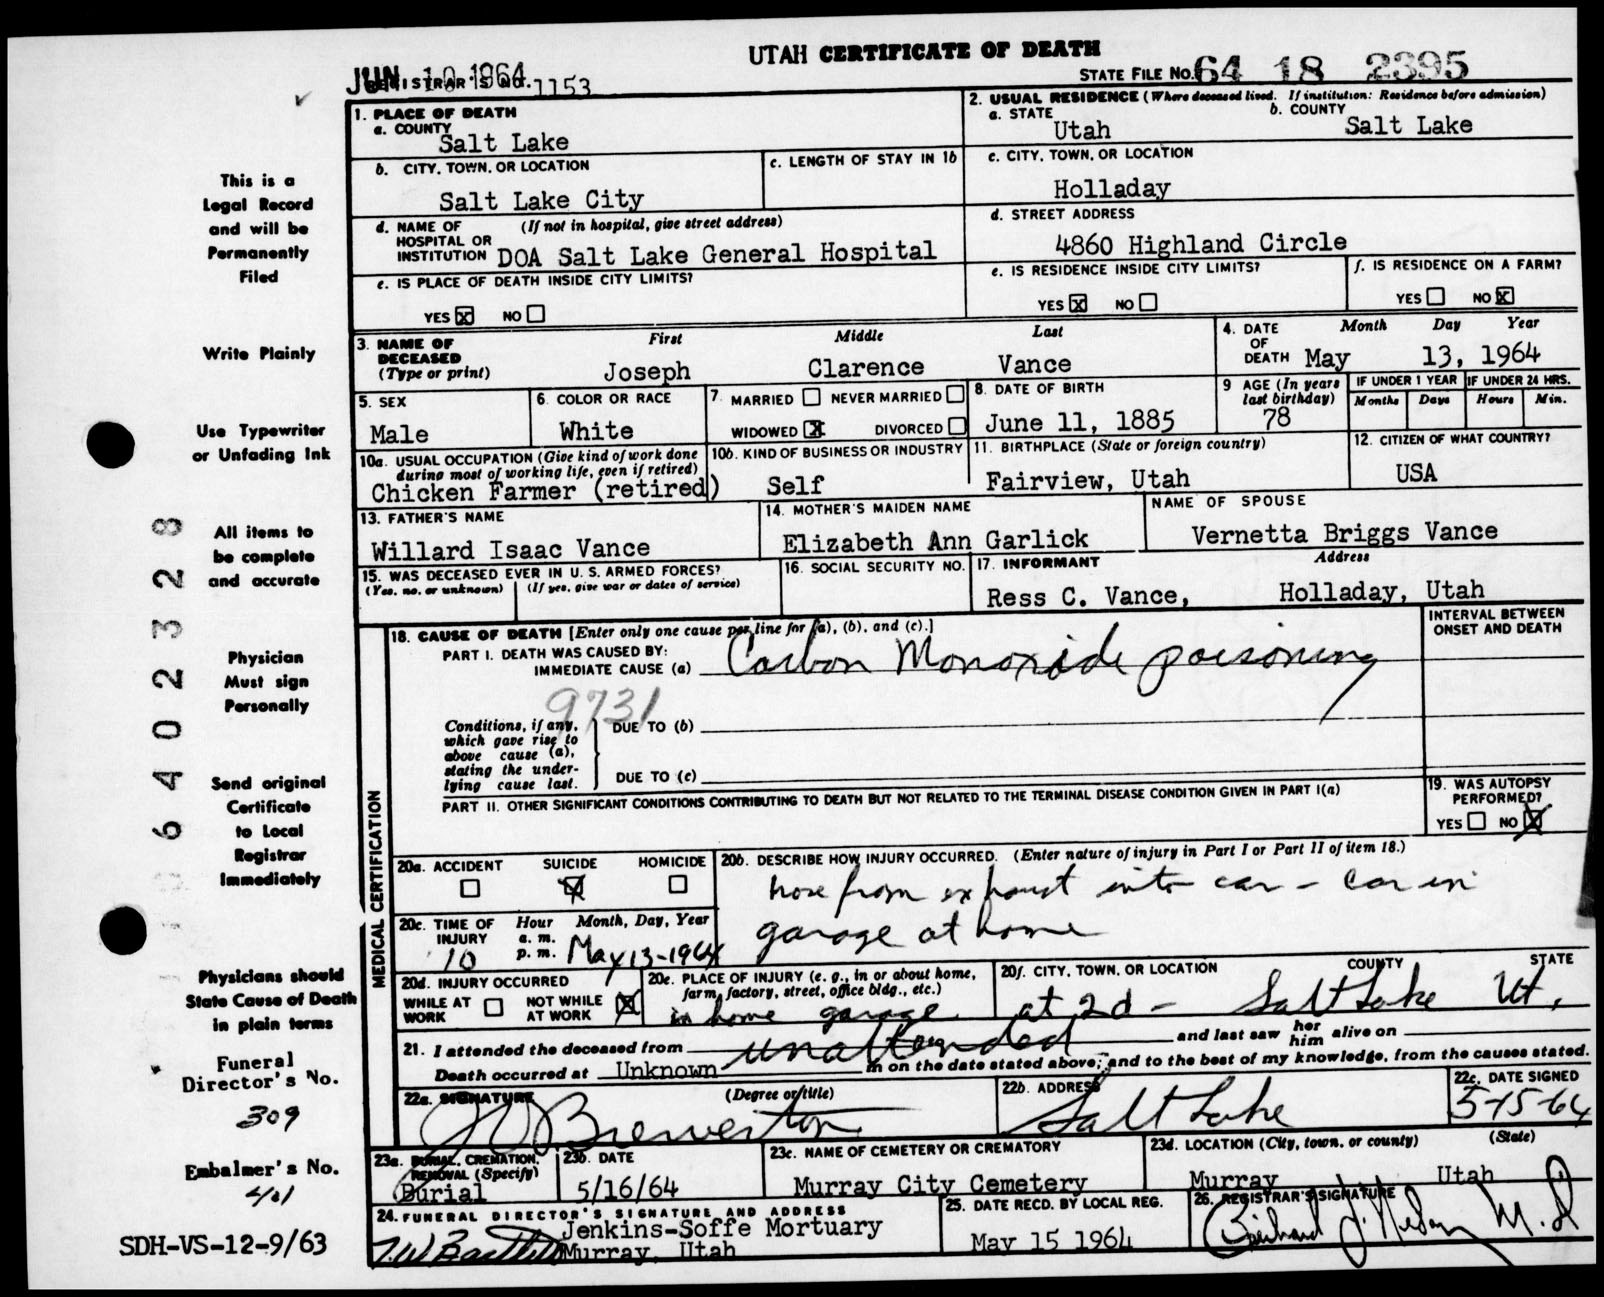 UTAH CERTIFICATE OF DEATH
JUN 10 1964
REGISTRAR'S NO. 1153
STATE FILE NO. 64 18 2395
1. PLACE OF DEATH
a. COUNTY
Salt Lake
2. USUAL RESIDENCE (Where deceased lived. If institution: Residence before admission)
a. STATE
Utah
b. COUNTY
Salt Lake
b. CITY, TOWN, OR LOCATION
Salt Lake City
c. LENGTH OF STAY IN 1b
c. CITY, TOWN, OR LOCATION
Holladay
d. NAME OF (If not in hospital, give street address)
HOSPITAL OR
INSTITUTION DOA Salt Lake General Hospital
d. STREET ADDRESS
4860 Highland Circle
e. IS PLACE OF DEATH INSIDE CITY LIMITS?
YES X NO
e. IS RESIDENCE INSIDE CITY LIMITS?
YES X NO
f. IS RESIDENCE ON A FARM?
YES NO X
3. NAME OF
DECEASED
(Type or print)
First Middle Last
Joseph Clarence Vance
4. DATE
OF
DEATH
Month Day Year
May 13, 1964
5. SEX
Male
6. COLOR OR RACE
White
7. MARRIED NEVER MARRIED
WIDOWED X DIVORCED
8. DATE OF BIRTH
June 11, 1885
9 AGE (In years
last birthday)
78
IF UNDER 1 YEAR
Months Days
IF UNDER 24 HRS.
Hours Min.
10a. USUAL OCCUPATION (Give kind of work done
during most of working life, even if retired)
Chicken Farmer (retired)
10b. KIND OF BUSINESS OR INDUSTRY
Self
11. BIRTHPLACE (State or foreign country)
Fairview, Utah
12. CITIZEN OF WHAT COUNTRY?
USA
13. FATHER'S NAME
Willard Isaac Vance
14. MOTHER'S MAIDEN NAME
Elizabeth Ann Garlick
NAME OF SPOUSE
Vernetta Briggs Vance
15. WAS DECEASED EVER IN U. S. ARMED FORCES?
(Yes, no, or unknown) (If yes, give war or dates of service)
16. SOCIAL SECURITY NO.
17. INFORMANT Address
Ress C. Vance, Holladay, Utah
MEDICAL CERTIFICATION
18. CAUSE OF DEATH [Enter only one cause per line for (a), (b), and (c).]
PART I. DEATH WAS CAUSED BY:
IMMEDIATE CAUSE (a) Carbon Monoxide poisoning
INTERVAL BETWEEN
ONSET AND DEATH
9731
Conditions, if any,
which gave rise to
above cause (a),
stating the under-
lying cause last.
DUE TO (b)
DUE TO (c)
PART II. OTHER SIGNIFICANT CONDITIONS CONTRIBUTING TO DEATH BUT NOT RELATED TO THE TERMINAL DISEASE CONDITION GIVEN IN PART I(a)
19. WAS AUTOPSY
PERFORMED?
YES NO X
20a. ACCIDENT SUICIDE HOMICIDE
X
20b. DESCRIBE HOW INJURY OCCURRED. (Enter nature of injury in Part I or Part II of item 18.)
hose from exhaust into car - car in
garage at home
20c. TIME OF
INJURY
Hour Month, Day, Year
a. m.
p. m.
10 May 13-1964
20d. INJURY OCCURRED
WHILE AT
WORK
NOT WHILE
AT WORK X
20e. PLACE OF INJURY (e. g., in or about home,
farm, factory, street, office bldg., etc.)
in home garage
20f. CITY, TOWN, OR LOCATION COUNTY STATE
at 2d - Salt Lake Ut.
21. I attended the deceased from unattended and last saw her
him alive on
Death occurred at Unknown m on the date stated above; and to the best of my knowledge, from the causes stated.
22a. SIGNATURE (Degree or title)
Brewerton
22b. ADDRESS
Salt Lake
22c. DATE SIGNED
5-15-64
23a. BURIAL, CREMATION,
REMOVAL (Specify)
Burial
23b. DATE
5/16/64
23c. NAME OF CEMETERY OR CREMATORY
Murray City Cemetery
23d. LOCATION (City, town, or county) (State)
Murray Utah
24. FUNERAL DIRECTOR'S SIGNATURE AND ADDRESS
Jenkins-Soffe Mortuary
Murray, Utah
25. DATE RECD. BY LOCAL REG.
May 15 1964
26. REGISTRAR'S SIGNATURE
M.D
This is a
Legal Record
and will be
Permanently
Filed
Write Plainly
Use Typewriter
or Unfading Ink
All items to
be complete
and accurate
Physician
Must sign
Personally
Send original
Certificate
to Local
Registrar
Immediately
Physicians should
State Cause of Death
in plain terms
Funeral
Director's No.
309
Embalmer's No.
401
SDH-VS-12-9/63
6402328